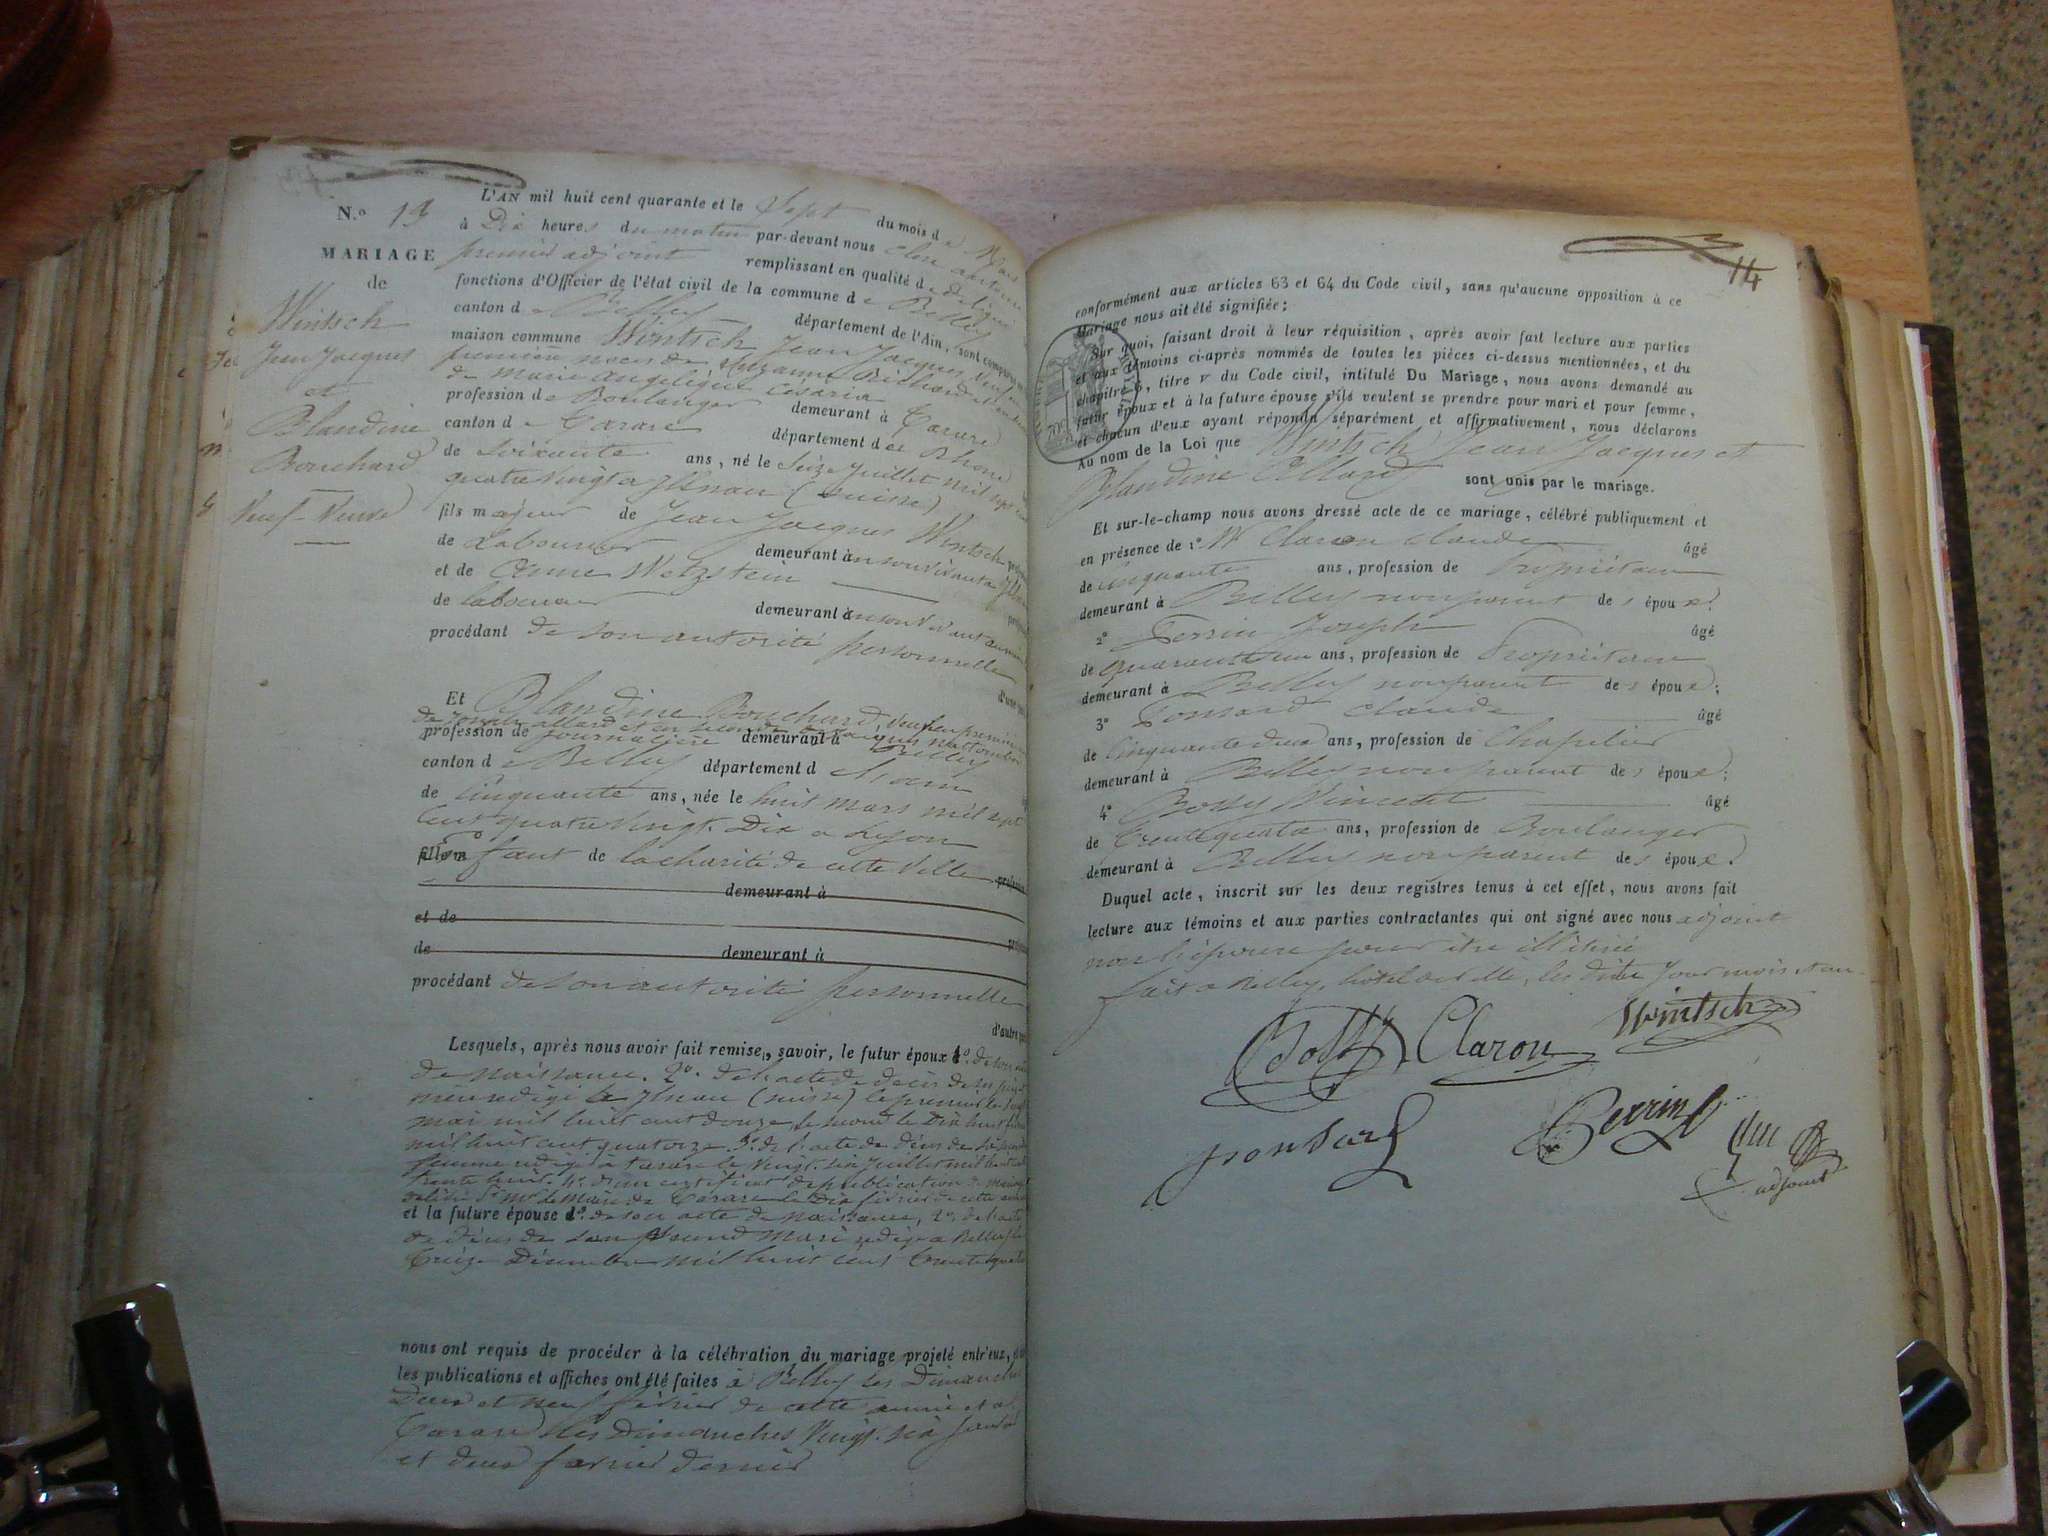 N.° 13
MARIAGE
de
Wintsch
Jean Jacques
et
Blandine
Bouchard
Veuf - Veuve
L'AN mil huit cent quarante et le Sept du mois de Mars
à Dix heures du matin par-devant nous
premier adjoint remplissant en qualité de délégué
fonctions d'Officier de l'état civil de la commune de Belley
canton de Belley département de l'Ain, sont comparus
maison commune Wintsch Jean Jacques
premières noces de Suzanne Richard et
de marie angelique
profession de Boulanger demeurant à Tarare
canton de Tarare département du Rhône
de soixante ans, né le Seize Juillet mil sept cent
quatrevingt a Ilsnau (suisse)
fils majeur de Jean Jacques Wintsch
de Laboureur demeurant à en son vivant a
et de Anne Wetzstein
de laboureur demeurant à en son vivant au même
procédant de son autorité personnelle
d'une part
Et Blandine Bouchard, veuve en premier
de Joseph allard et en seconde
profession de Journalière demeurant à Belley
canton de Belley département de l'ain
de Cinquante ans, née le huit mars mil sept
Cent quatre Vingt. Dix a Lyon
fille m Enfant de la charité de cette Ville
demeurant à
et de
de demeurant à
procédant de son autorité personnelle
d'autre part
Lesquels, après nous avoir fait remise, savoir, le futur époux 1°. de son acte
de naissance. 2°. de l'acte de décès de ses père et
mère rédigé à Ilsnau (suisse) le premier le
mai mil huit cent douze, le second le Dix huit
mil huit cent quatorze. 3°. de l'acte de décès de sa seconde
femme rédigé à tarare le vingt. six Juillet mil huit cent
trente huit. 4°. d'un certificat de publication de mariage
délivré pr. Mr. le Maire de Tarare le Dix février de cette année
et la future épouse 1°. de son acte de naissance, 2°. de l'acte
de décès de son second mari rédigé a Belley le
treize Décembre mil huit cent trente quatre
nous ont requis de procéder à la célébration du mariage projeté entr'eux,
les publications et affiches ont été faites à Belley les Dimanches
Deux et neuf février de cette année et a
Tarare les Dimanches Vingt. six Janvier
et deux février dernier
14
conformément aux articles 63 et 64 du Code civil, sans qu'aucune opposition à ce
Mariage nous ait été signifiée;
Sur quoi, faisant droit à leur réquisition, après avoir fait lecture aux parties
et aux témoins ci-après nommés de toutes les pièces ci-dessus mentionnées, et du
chapitre 6, titre v du Code civil, intitulé Du Mariage, nous avons demandé au
futur époux et à la future épouse s'ils veulent se prendre pour mari et pour femme,
et chacun d'eux ayant répondu séparément et affirmativement, nous déclarons
Au nom de la Loi que Wintsch Jean Jacques et
Blandine Allard sont unis par le mariage.
Et sur-le-champ nous avons dressé acte de ce mariage, célébré publiquement et
en présence de 1° M Claron Claude âgé
de cinquante ans, profession de Propriétaire
demeurant à Belley non parent des époux;
2° Perrin Joseph âgé
de quarante un ans, profession de Propriétaire
demeurant à Belley non parent des époux;
3° Ponsard Claude âgé
de Cinquante deux ans, profession de Chapelier
demeurant à Belley non parent des époux;
4° Bossy Vincent âgé
de Trente quatre ans, profession de Boulanger
demeurant à Belley non parent des époux.
Duquel acte, inscrit sur les deux registres tenus à cet effet, nous avons fait
lecture aux témoins et aux parties contractantes qui ont signé avec nous adjoint
non l'épouse pour être illitérée
fait a Belley, hotel de ville, les dits Jour mois et an.
Bossy Claron Wintsch
ponsard Perrin
adjoint